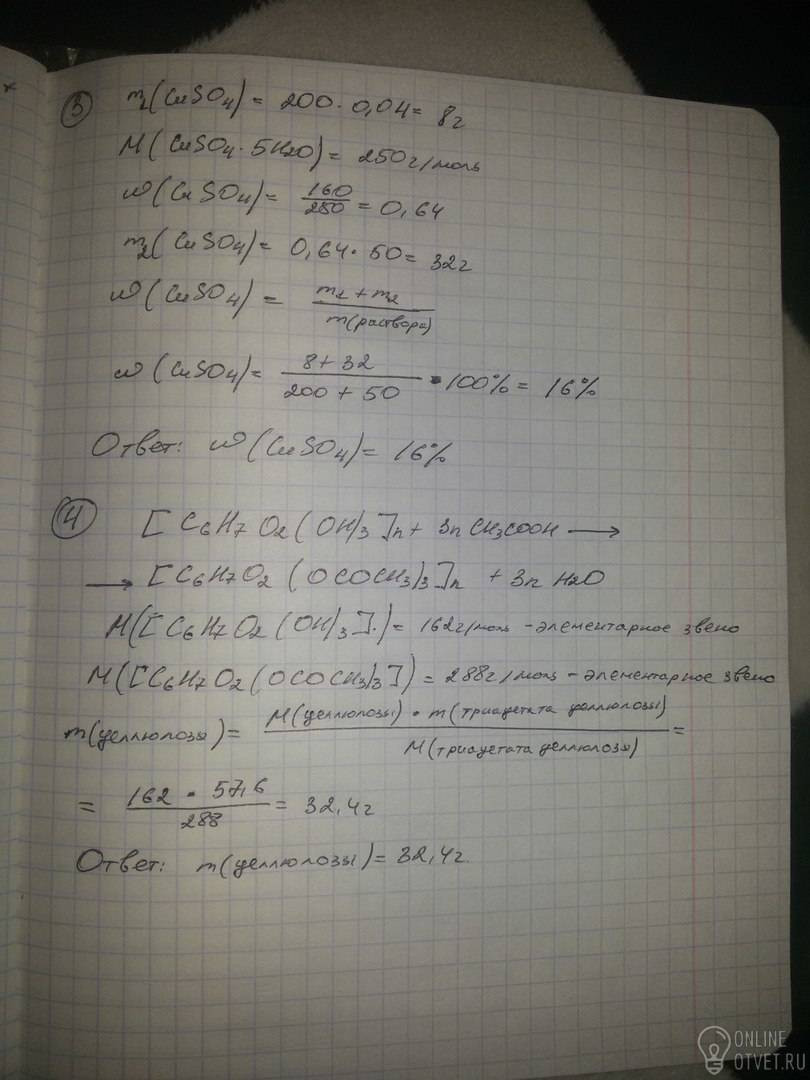 ③ m1(CuSO4) = 200 · 0,04 = 8г
M(CuSO4 · 5H2O) = 250г/моль
ω(CuSO4) = 160/250 = 0,64
m2(CuSO4) = 0,64 · 50 = 32г
ω(CuSO4) = m1 + m2 / m(раствора)
ω(CuSO4) = 8 + 32 / 200 + 50 · 100% = 16%
Ответ: ω(CuSO4) = 16%
④ [C6H7O2(OH)3]n + 3n CH3COOH ⟶
⟶ [C6H7O2(OCOCH3)3]n + 3n H2O
M([C6H7O2(OH)3].) = 162г/моль - элементарное звено
M([C6H7O2(OCOCH3)3]) = 288г/моль - элементарное звено
m(целлюлозы) = M(целлюлозы) · m(триацетата целлюлозы) / M(триацетата целлюлозы) =
= 162 · 57,6 / 288 = 32,4г
Ответ: m(целлюлозы) = 32,4г.
ONLINE
OTVET.RU